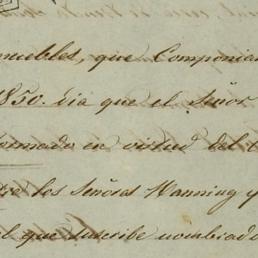 muebles, que Componia
1850. dia que el Señor
formado en virtud del
los Señores Manning y
el que suscribe nombrado